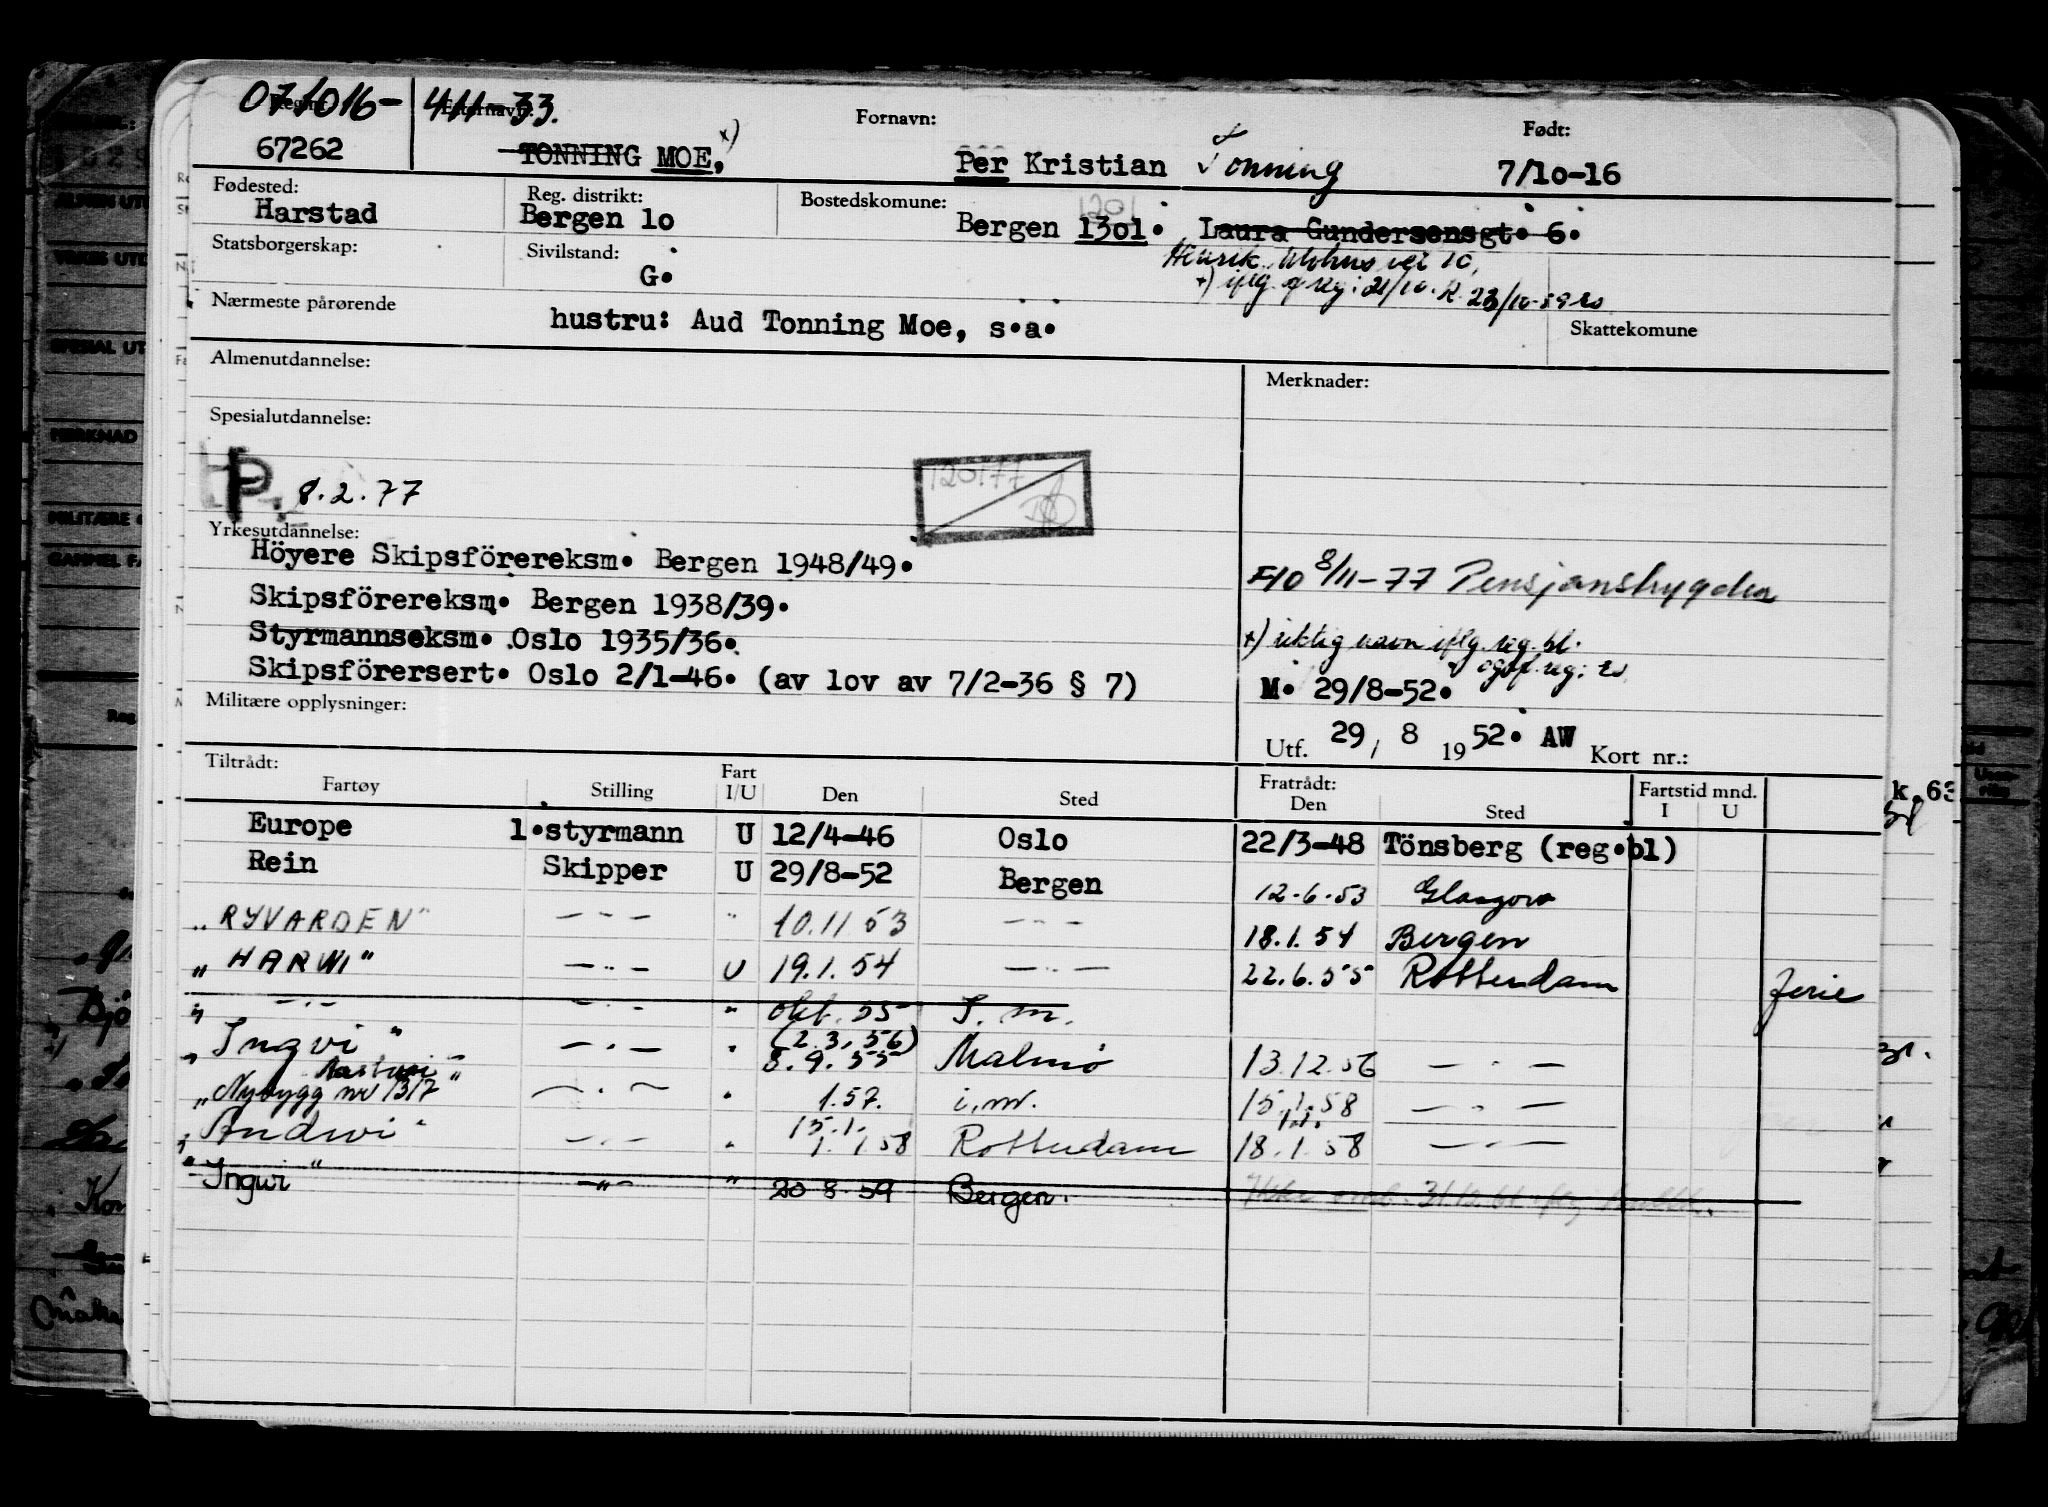 071016- 411-33.
Fornavn: Født:
67262 TONNING MOE, x) Per Kristian Tonning 7/10-16
Fødested: Reg. distrikt: Bostedskomune:
Harstad Bergen 10 Bergen 1301. Laura Gundersensgt. 6.
Statsborgerskap: Sivilstand: Henrik vei 10,
G. x) iflg. 21/10. 23/10-59
Nærmeste pårørende hustru: Aud Tonning Moe, s.a. Skattekomune
Almenutdannelse: Merknader:
Spesialutdannelse:
P 8.2.77 120177
Yrkesutdannelse:
Höyere Skipsförereksm. Bergen 1948/49. F10 8/11-77 Pensjonstrygden
Skipsförereksm. Bergen 1938/39.
Styrmannseksm. Oslo 1935/36. x) riktig navn iflg. reg. bl.
Skipsförersert. Oslo 2/1-46. (av lov av 7/2-36 § 7) M. 29/8-52.
Militære opplysninger:
Utf. 29, 8 1952. AW Kort nr.:
Tiltrådt: Fratrådt: Fartstid mnd.
Fartøy Stilling Fart I/U Den Sted Den Sted I U
Europe 1.styrmann U 12/4-46 Oslo 22/3-48 Tönsberg (reg.bl)
Rein Skipper U 29/8-52 Bergen 12.6.53 Glasgow
"RYVARDEN" -"- " 10.11 53 -"- 18.1.54 Bergen
"HARWI" -"- U 19.1.54 -"- 22.6.55 Rotterdam ferie
" -"- -"- " okt. 55 I.m.
"Ingvi" -"- " (2.3.56) 8.9.55 Malmö 13.12.56 -"-
"Nybygg nr 1317" -"- " 1.57. i.m. 15.1.58 -"-
"Andwi" -"- " 15.1. 1.1.58 Rotterdam 18.1.58 -"-
"Ingwi" -"- " 20 8 59 Bergen.